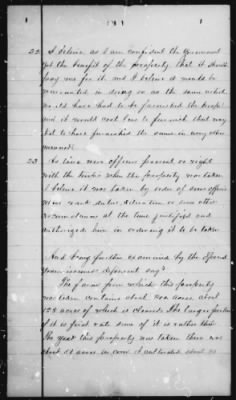 22. I believe as I am confident the Government
got the benefit of the property that it should
pay me for it and I believe it would be
in doing so as the same which
would have had to be furnished the troops
and it would cost less to furnish that way
but to have furnished the same in any other
manner?
23. As there were officers present or right
with the troops when the property was taken
I believe it was taken by order of some officer
whose rank, duties, situation or some other
circumstances at the time justified and
authorized him in ordering it to be taken
And being further examined by the Special
Commissioner deponent says
The farm from which this property
was taken contains about acres about
158 acres of which is cleared. The larger portion
of it is first rate some of it is rather thin
The year this property was taken there was
about acres in corn it about